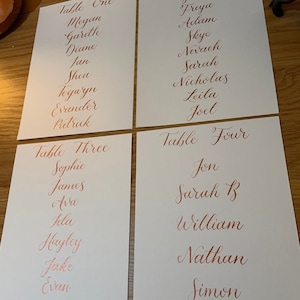 Table One
Megan
Gareth
Diane
Ian
Shea
Tegwyn
Evander
Patrick
Freya
Adam
Skye
Nevaeh
Sarah
Nicholas
Leila
Joel
Table Three
Sophie
James
Ava
Isla
Hayley
Jake
Evan
Table Four
Jon
Sarah B
William
Nathan
Simon